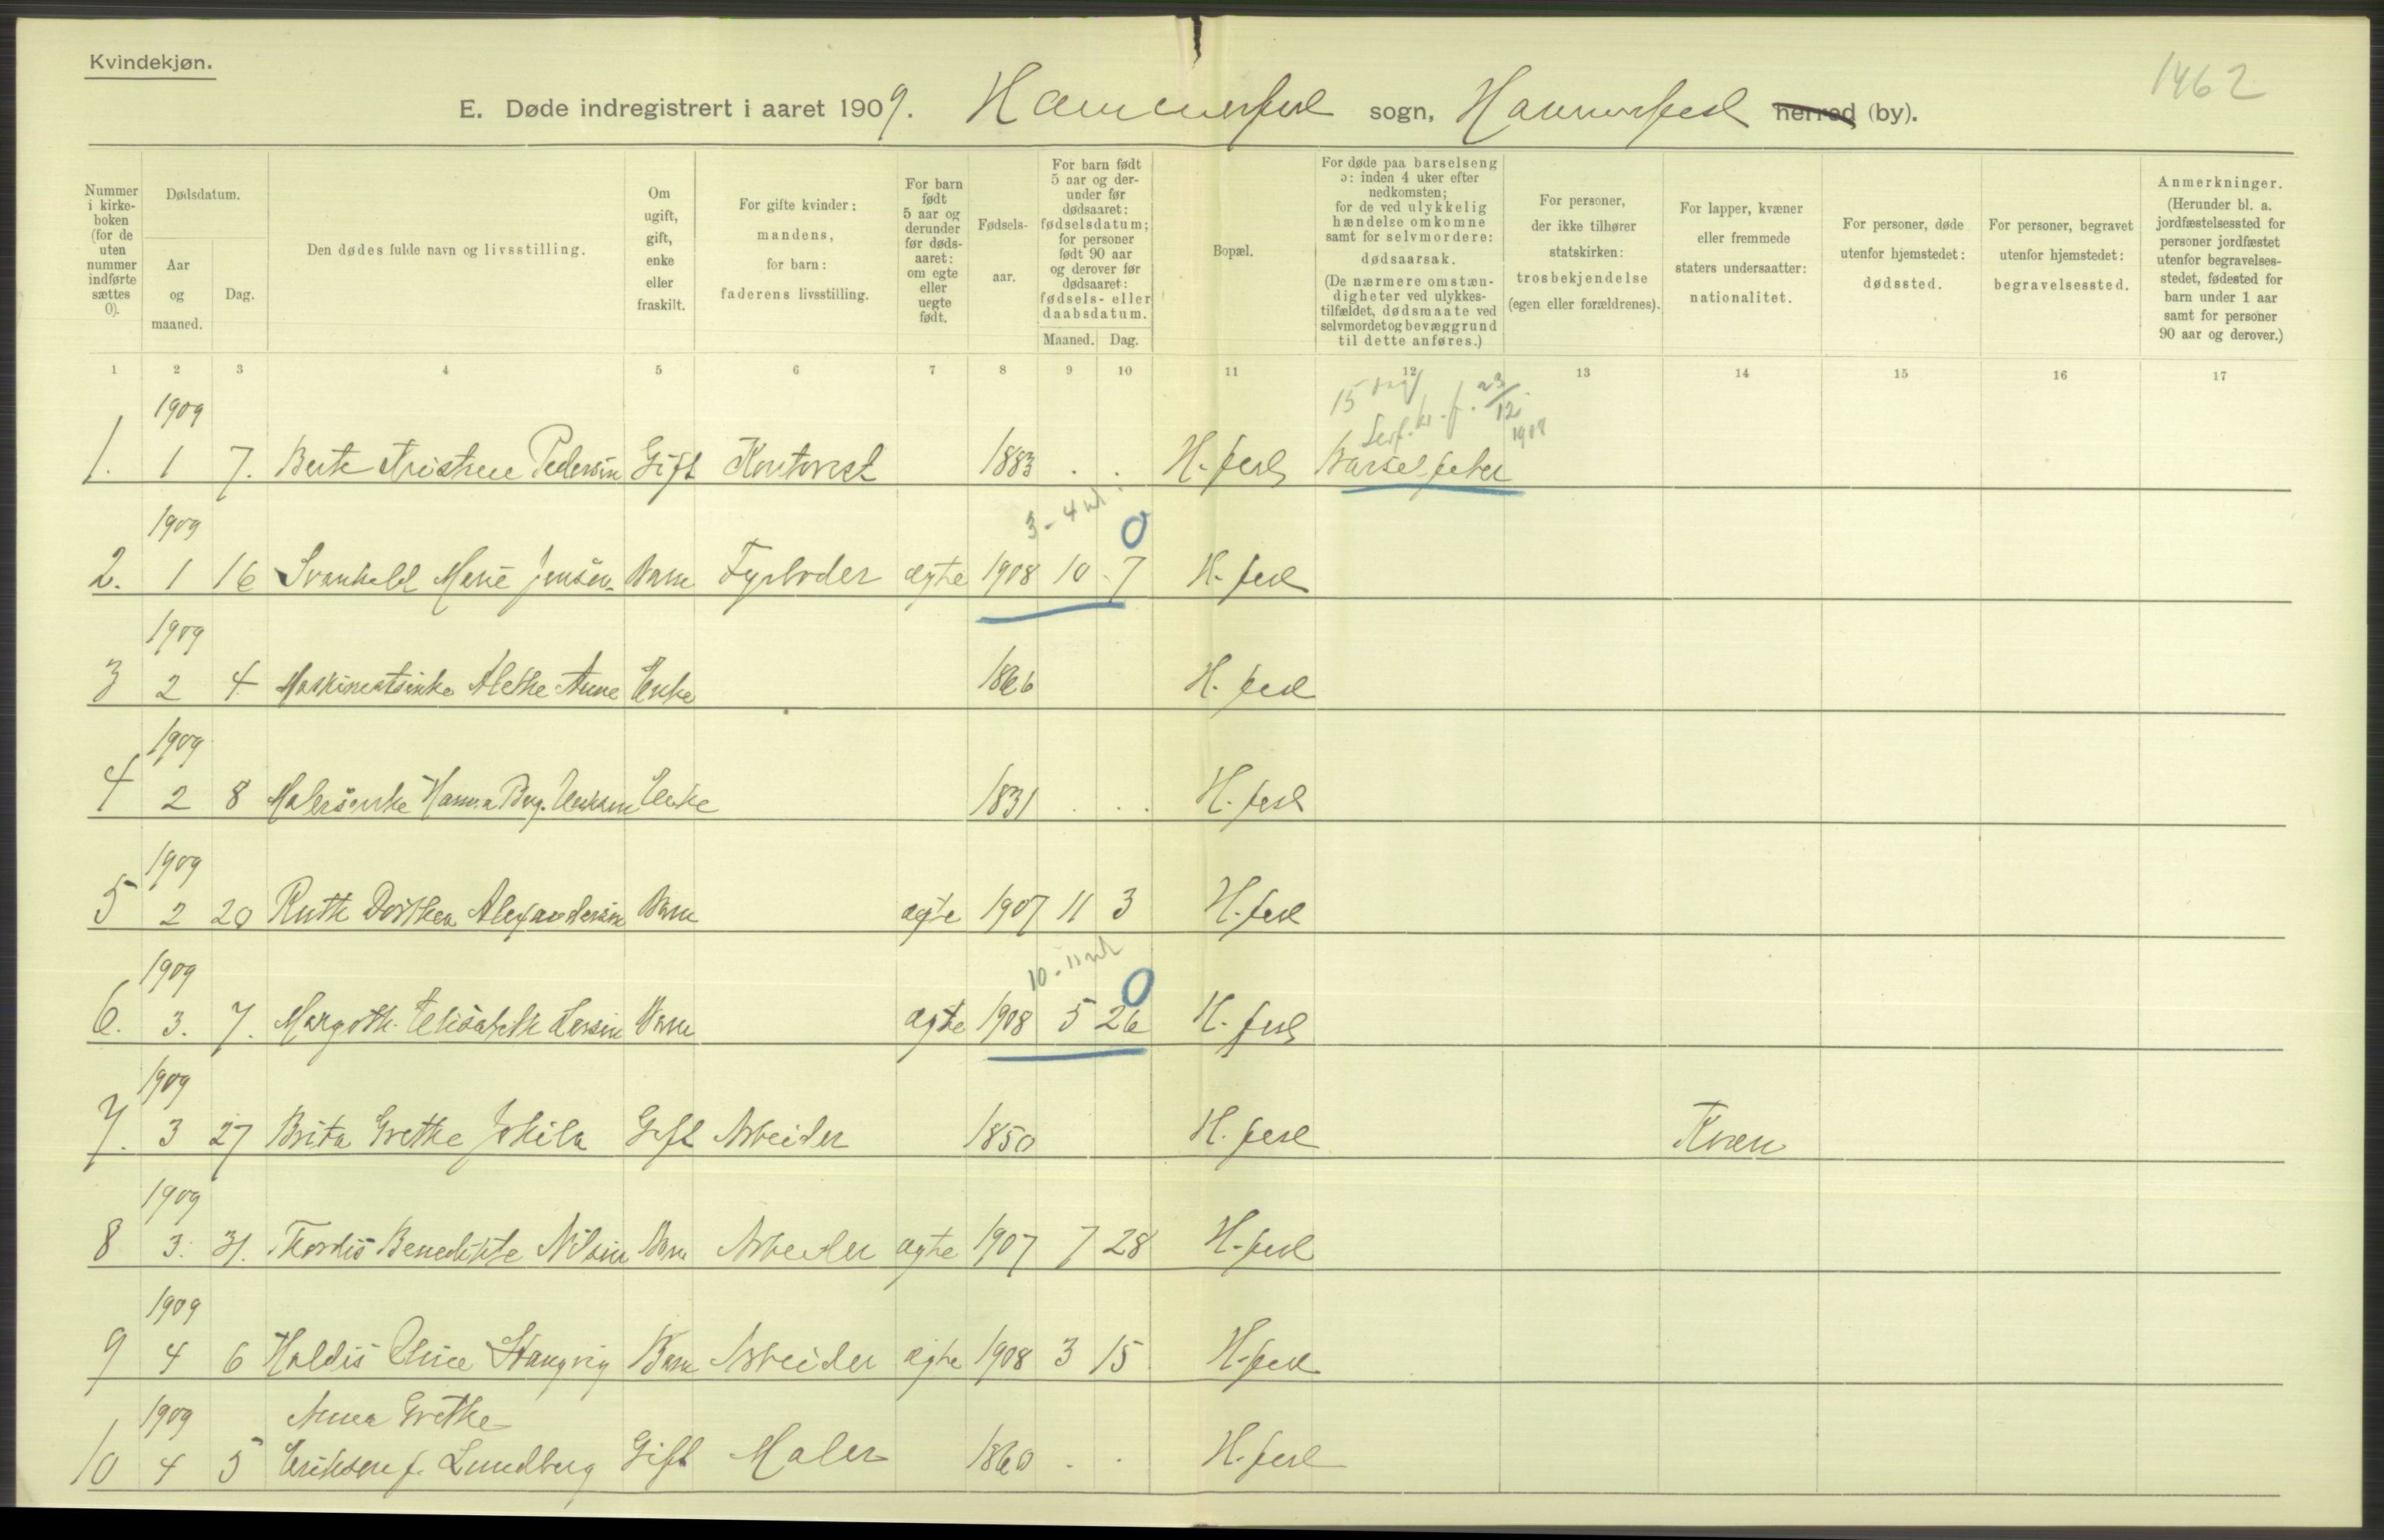 Kvindekjøn.
1462
E. Døde indregistrert i aaret 1909. Hammerfest sogn, Hammerfest herred (by).
Nummer i kirke-boken (for de uten nummer indførte sættes 0).
Dødsdatum.
Aar og maaned.
Dag.
Den dødes fulde navn og livsstilling.
Om ugift, gift, enke eller fraskilt.
For gifte kvinder: mandens, for barn: faderens livsstilling.
For barn født 5 aar og derunder før døds-aaret: om egte eller uegte født.
Fødsels-aar.
For barn født 5 aar og der-under før dødsaaret: fødselsdatum; for personer født 90 aar og derover før dødsaaret: fødsels- eller daabsdatum.
Maaned.
Dag.
Bopæl.
For døde paa barselseng ɔ: inden 4 uker efter nedkomsten; for de ved ulykkelig hændelse omkomne samt for selvmordere: dødsaarsak. (De nærmere omstæn-digheter ved ulykkes-tilfældet, dødsmaate ved selvmordet og bevæggrund til dette anføres.)
For personer, der ikke tilhører statskirken: trosbekjendelse (egen eller forældrenes).
For lapper, kvæner eller fremmede staters undersaatter: nationalitet.
For personer, døde utenfor hjemstedet: dødssted.
For personer, begravet utenfor hjemstedet: begravelsessted.
Anmerkninger. (Herunder bl. a. jordfæstelsessted for personer jordfæstet utenfor begravelses-stedet, fødested for barn under 1 aar samt for personer 90 aar og derover.)
1 2 3 4 5 6 7 8 9 10 11 12 13 14 15 16 17
1909 15 dag f. 23/12 1908
1. 1 7. Berte Kristine Pedersen Gift Kontorist 1883 . . H.fest Barselfeber
1909 3-4 0
2. 1 16 Svanhild Marie Jensen Barn Fyrbøder ægte 1908 10 7 H.fest
1909
3 2 4 Maskinistenke Alethe Aune Enke 1866 H.fest
1909
4 2 8 Malersenke Hanna Eriksen Enke 1831 . . . H.fest
1909
5 2 20 Ruth Dorthea Alexandersen Barn ægte 1907 11 3 H.fest
1909 10-11 0
6. 3. 7. Margoth Elisabeth Larsen Barn ægte 1908 5 26 H.fest
1909
7. 3 27 Brita Grethe Jokila Gift Arbeider 1850 H.fest Kvæn
1909
8 3. 31. Thordis Benedikte Nilsen Barn Arbeider ægte 1907 7 28 H.fest
1909
9 4 6 Haldis Stangvig Barn Arbeider ægte 1908 3 15 H.fest
1909 Anna Grethe
10 4 5 Eriksen f. Lundberg Gift Maler 1860 . . H.fest